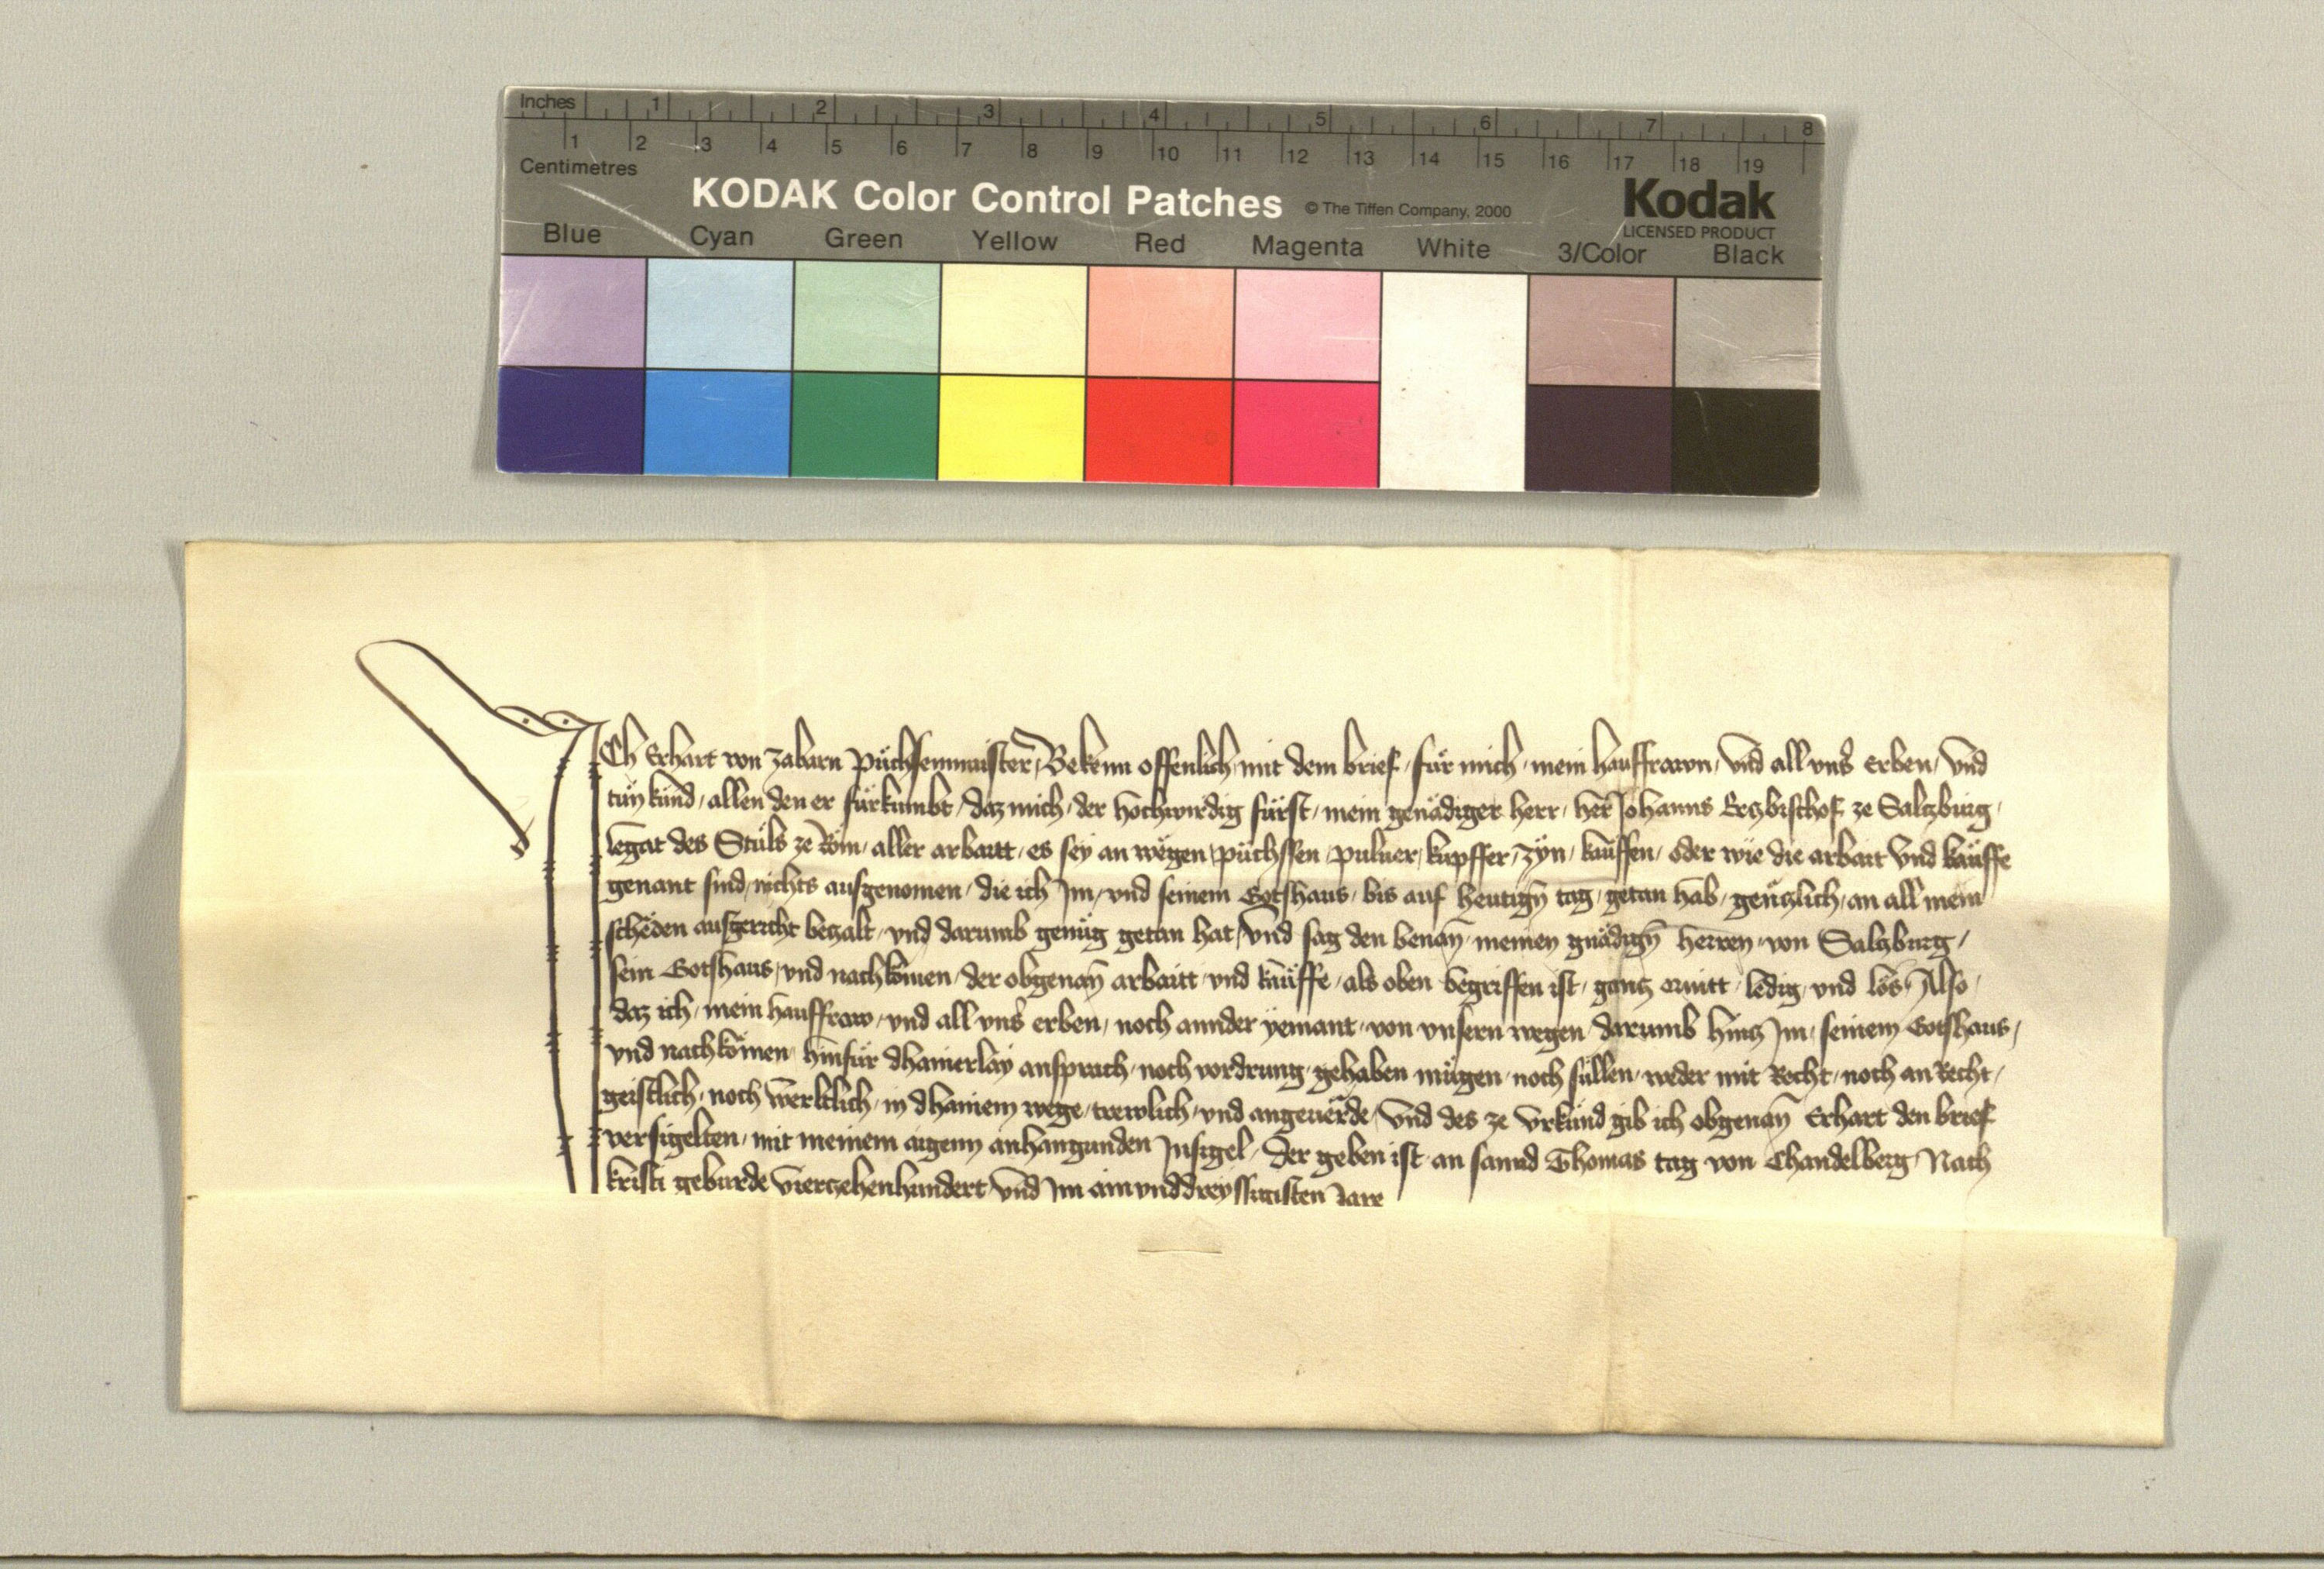 Inches 1 2 3 4 5 6 7 8
1 2 3 4 5 6 7 8 9 10 11 12 13 14 15 16 17 18 19
Centimetres
KODAK Color Control Patches © The Tiffen Company, 2000 Kodak
LICENSED PRODUCT
Blue Cyan Green Yellow Red Magenta White 3/Color Black
ICh Erhart von Zabarn Püchsenmaister, Bekenn offenlich, mit dem brief, für mich, mein hausfrawn, vnd all vnser Erben, vnd
tün kund, allen den er fürkumbt, daz mich, der hochwirdig fürst, mein genädiger herr, her Johanns Ertzbischof ze Saltzburg,
legat des Stuls ze Rom, aller arbaitt, es sey an wegen, püchssen, puluer, kupffer, zyn, kauffen, oder wie die arbait vnd kauffe
genant sind, nichts ausgenomen, die ich Im, vnd seinem Gotshaus, bis auf heutigñ tag, getan hab, gentzlich, an all mein
scheden ausgericht betzalt, vnd darumb genüg getan hat, Vnd sag den benañ meinen gnädigñ herren, von Saltzburg,
sein Gotshaus, vnd nachkomen, der obgenañ arbaitt, vnd kauffe, als oben begriffen ist, gantz quitt, ledig, vnd los, Also,
daz ich, mein hausfraw, vnd all vnser erben, noch annder yemant, von vnsern wegen darumb hintz Im, seinem Gotshaus,
vnd nachkömen, hinfür dhainerlay anspruch, noch vordrung, gehaben mügen, noch süllen, weder mit Recht, noch an Recht,
geistlich, noch werltlich, in dhainem wege, trewlich, vnd angeuerde, Vnd des ze vrkund gib ich obgenañ Erhart den brief
versigelten, mit meinem aigenn anhangunden Insigel, Der geben ist, an sannd Thomas tag von Chandelberg, Nach
kristi geburde vierzehenhundert, vnd Im ainvnddreyssigisten Jare